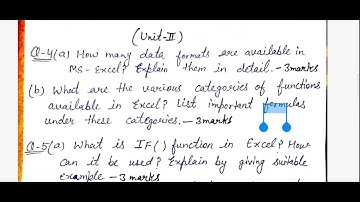 (Unit-III)
Q-4(a) How many data formats are available in
MS-Excel? Explain them in detail. - 3marks
(b) What are the various categories of functions
available in Excel? List important formulas
under these categories. - 3marks
Q-5(a) What is IF() function in Excel? How
can it be used? Explain by giving suitable
example - 3 marks